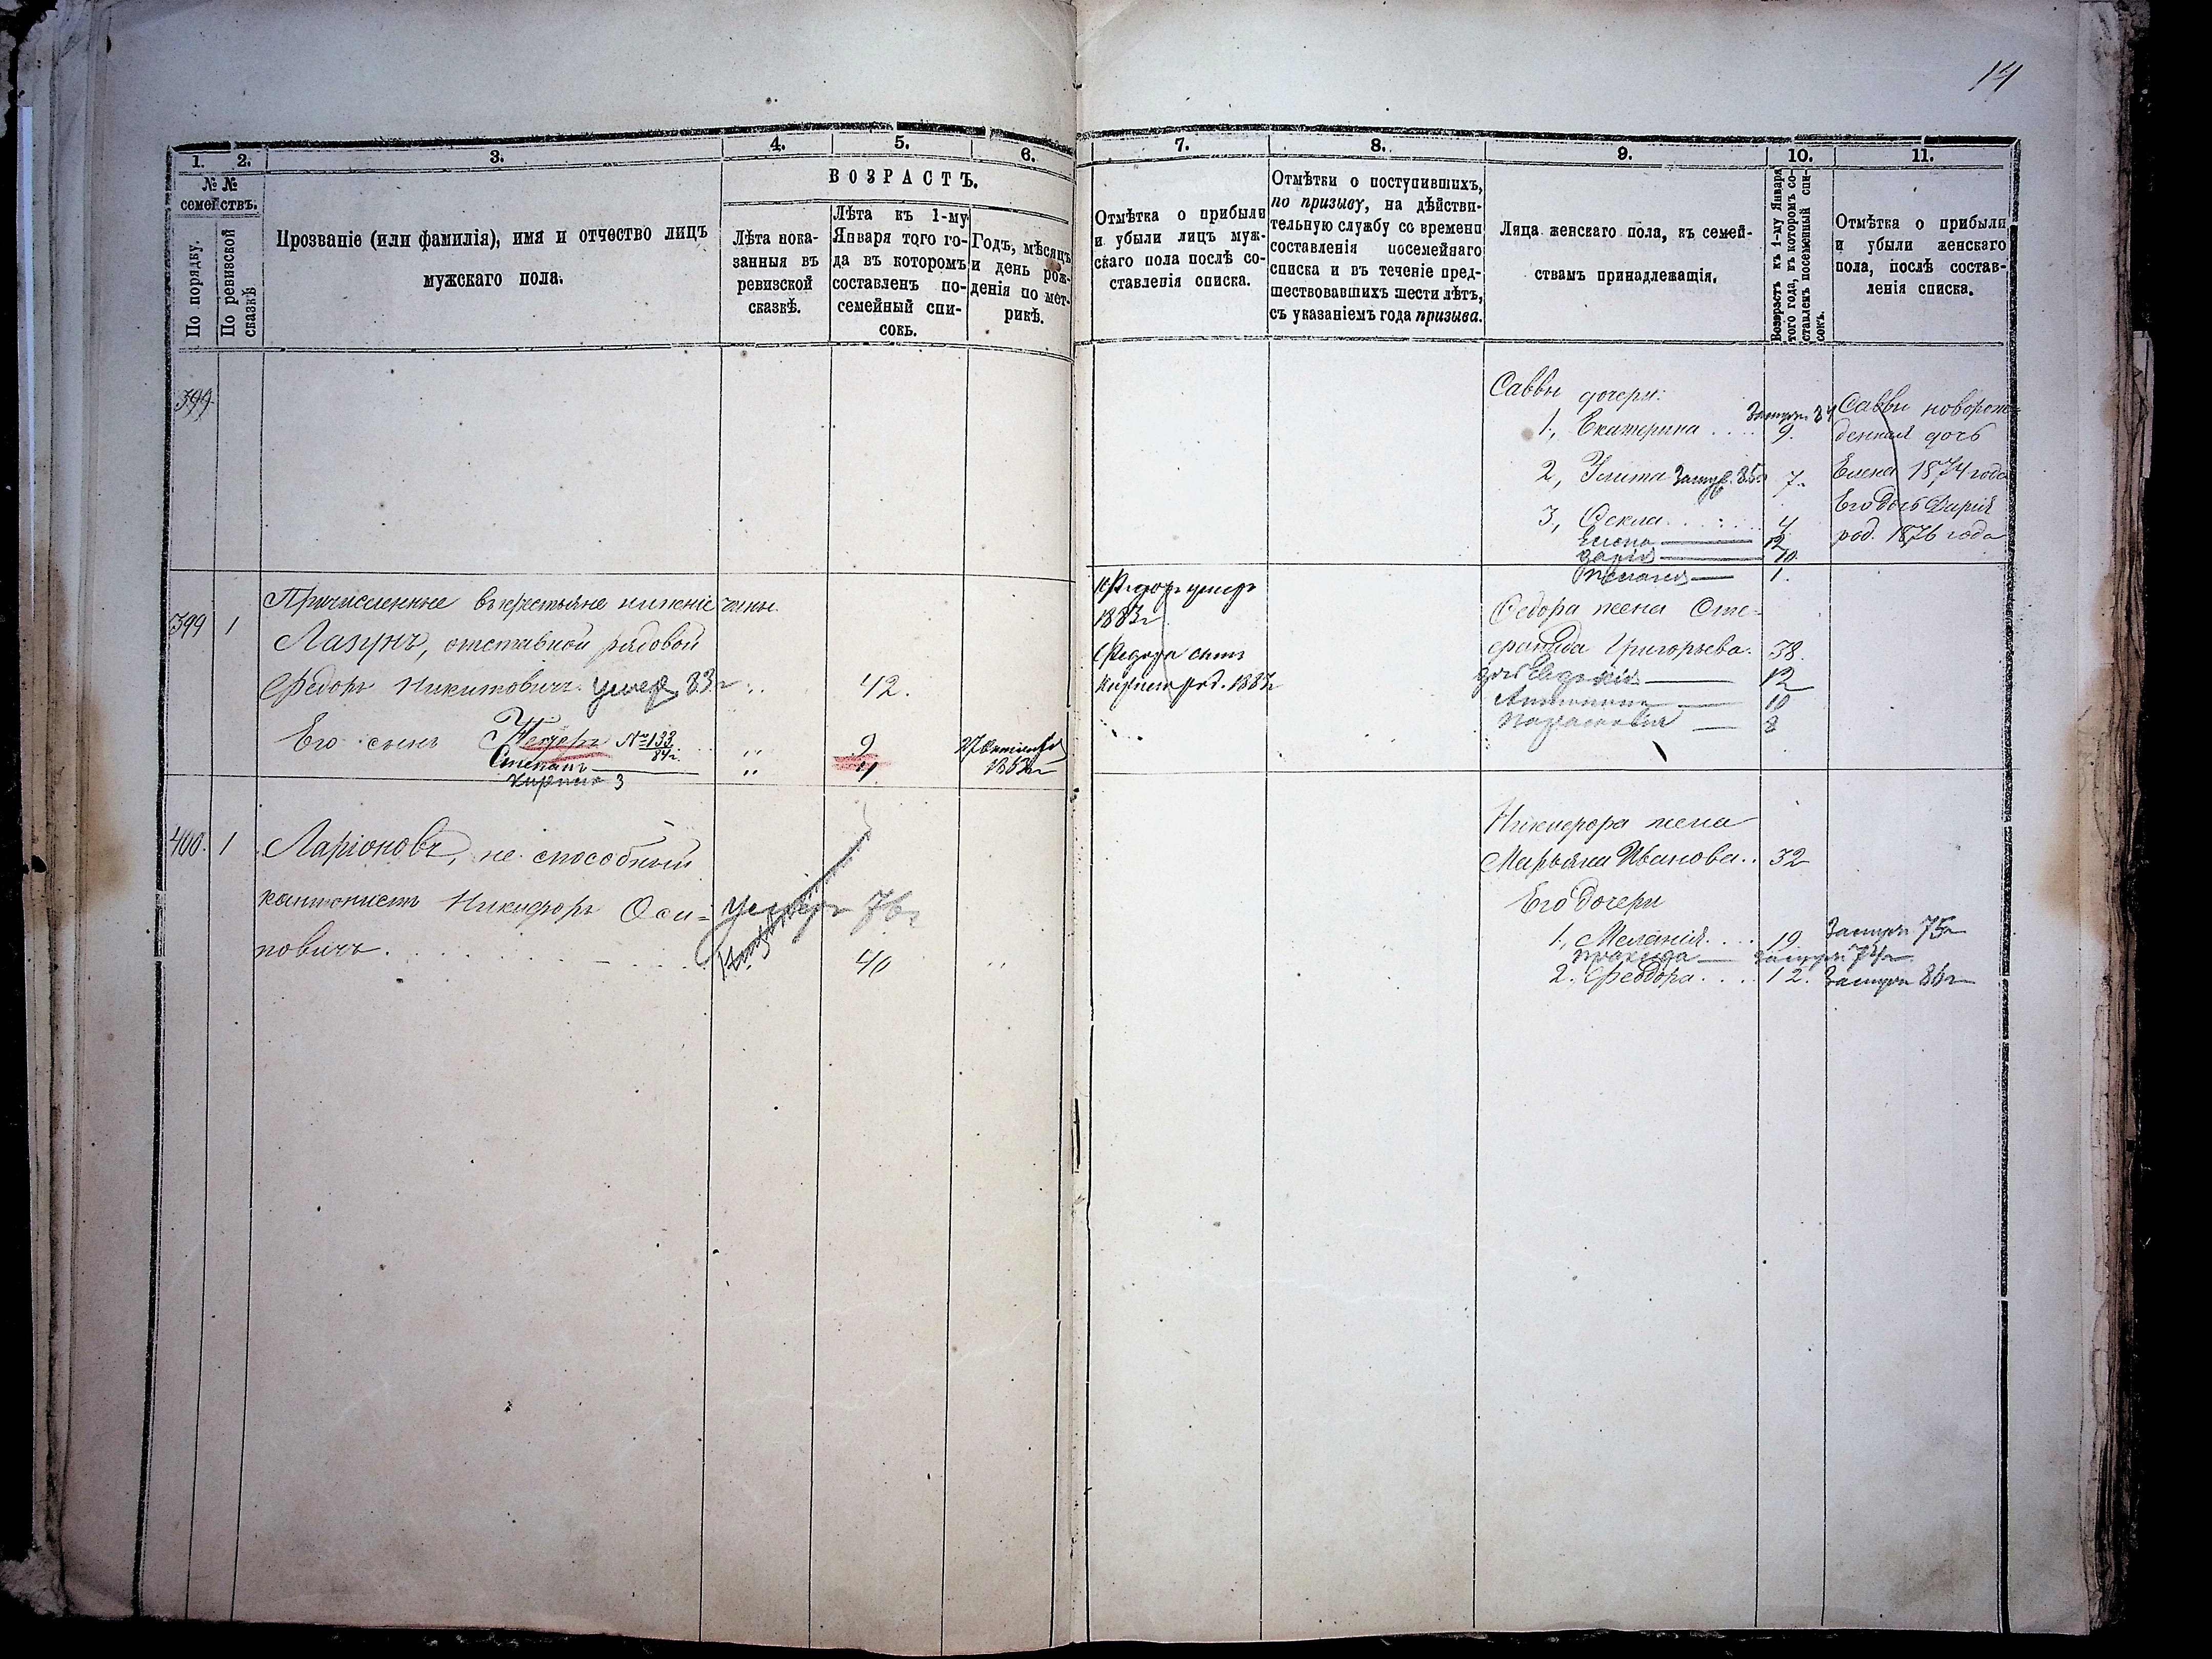 14
1. 2. 3. 4. 5. 6. 7. 8. 9. 10. 11.
№ №
семействъ.
По порядку.
По ревизской
сказкѣ
Прозваніе (или фамилія), имя и отчество лицъ
мужскаго пола.
ВОЗРАСТЪ.
Лѣта пока-
занныя въ
ревизской
сказкѣ.
Лѣта къ 1-му
Января того го-
да въ которомъ
составленъ по-
семейный спи-
сокъ.
Годъ, мѣсяцъ
и день рож-
денія по мет-
рикѣ.
Отмѣтка о прибыли
и убыли лицъ муж-
скаго пола послѣ со-
ставленія списка.
Отмѣтки о поступившихъ,
по призыву, на дѣйстви-
тельную службу со времени
составленія посемейнаго
списка и въ теченіе пред-
шествовавшихъ шести лѣтъ,
съ указаніемъ года призыва.
Лица женскаго пола, къ семей-
ствамъ принадлежащія.
Возврастъ къ 1-му Января
того года, въ которомъ со-
ставленъ посемейный спи-
сокъ.
Отмѣтка о прибыли
и убыли женскаго
пола, послѣ состав-
ленія списка.
399
Саввы дочери:
1, Екатерина Замуж. 84 9.
2, Улита Замуж. 85г 7.
3, Фекла 4
Елена 12
Дарія 10
1.
Саввы новорож-
денная дочь
Елена 1874 года
Его дочь Дарія
род. 1876 года
399 1
Причисленные въ крестьяне нижніе чины.
Лазунъ, отставной рядовой
Федоръ Никитовичъ умер 83г 42.
Его сынъ Федоръ № 133
84г. 9
1863г
Степанъ 4
Кирило 3
Федоръ умеръ
1883г
Федора сынъ
Кирило род. 1883г
Федора жена Сте-
фанида Григорьева. 38.
дочь Евдокія 12
Антонина 10
Парасковья 3
400. 1
Ларіоновъ, не способный
кантонистъ Никифоръ Оси-
повичъ
умеръ 76г
40
Никифора жена
Марьяна Иванова. 32
Его дочери
1, Меланія. 19 Замуж 75г
замуж 74г
2. Феодора. 12. Замуж 86г